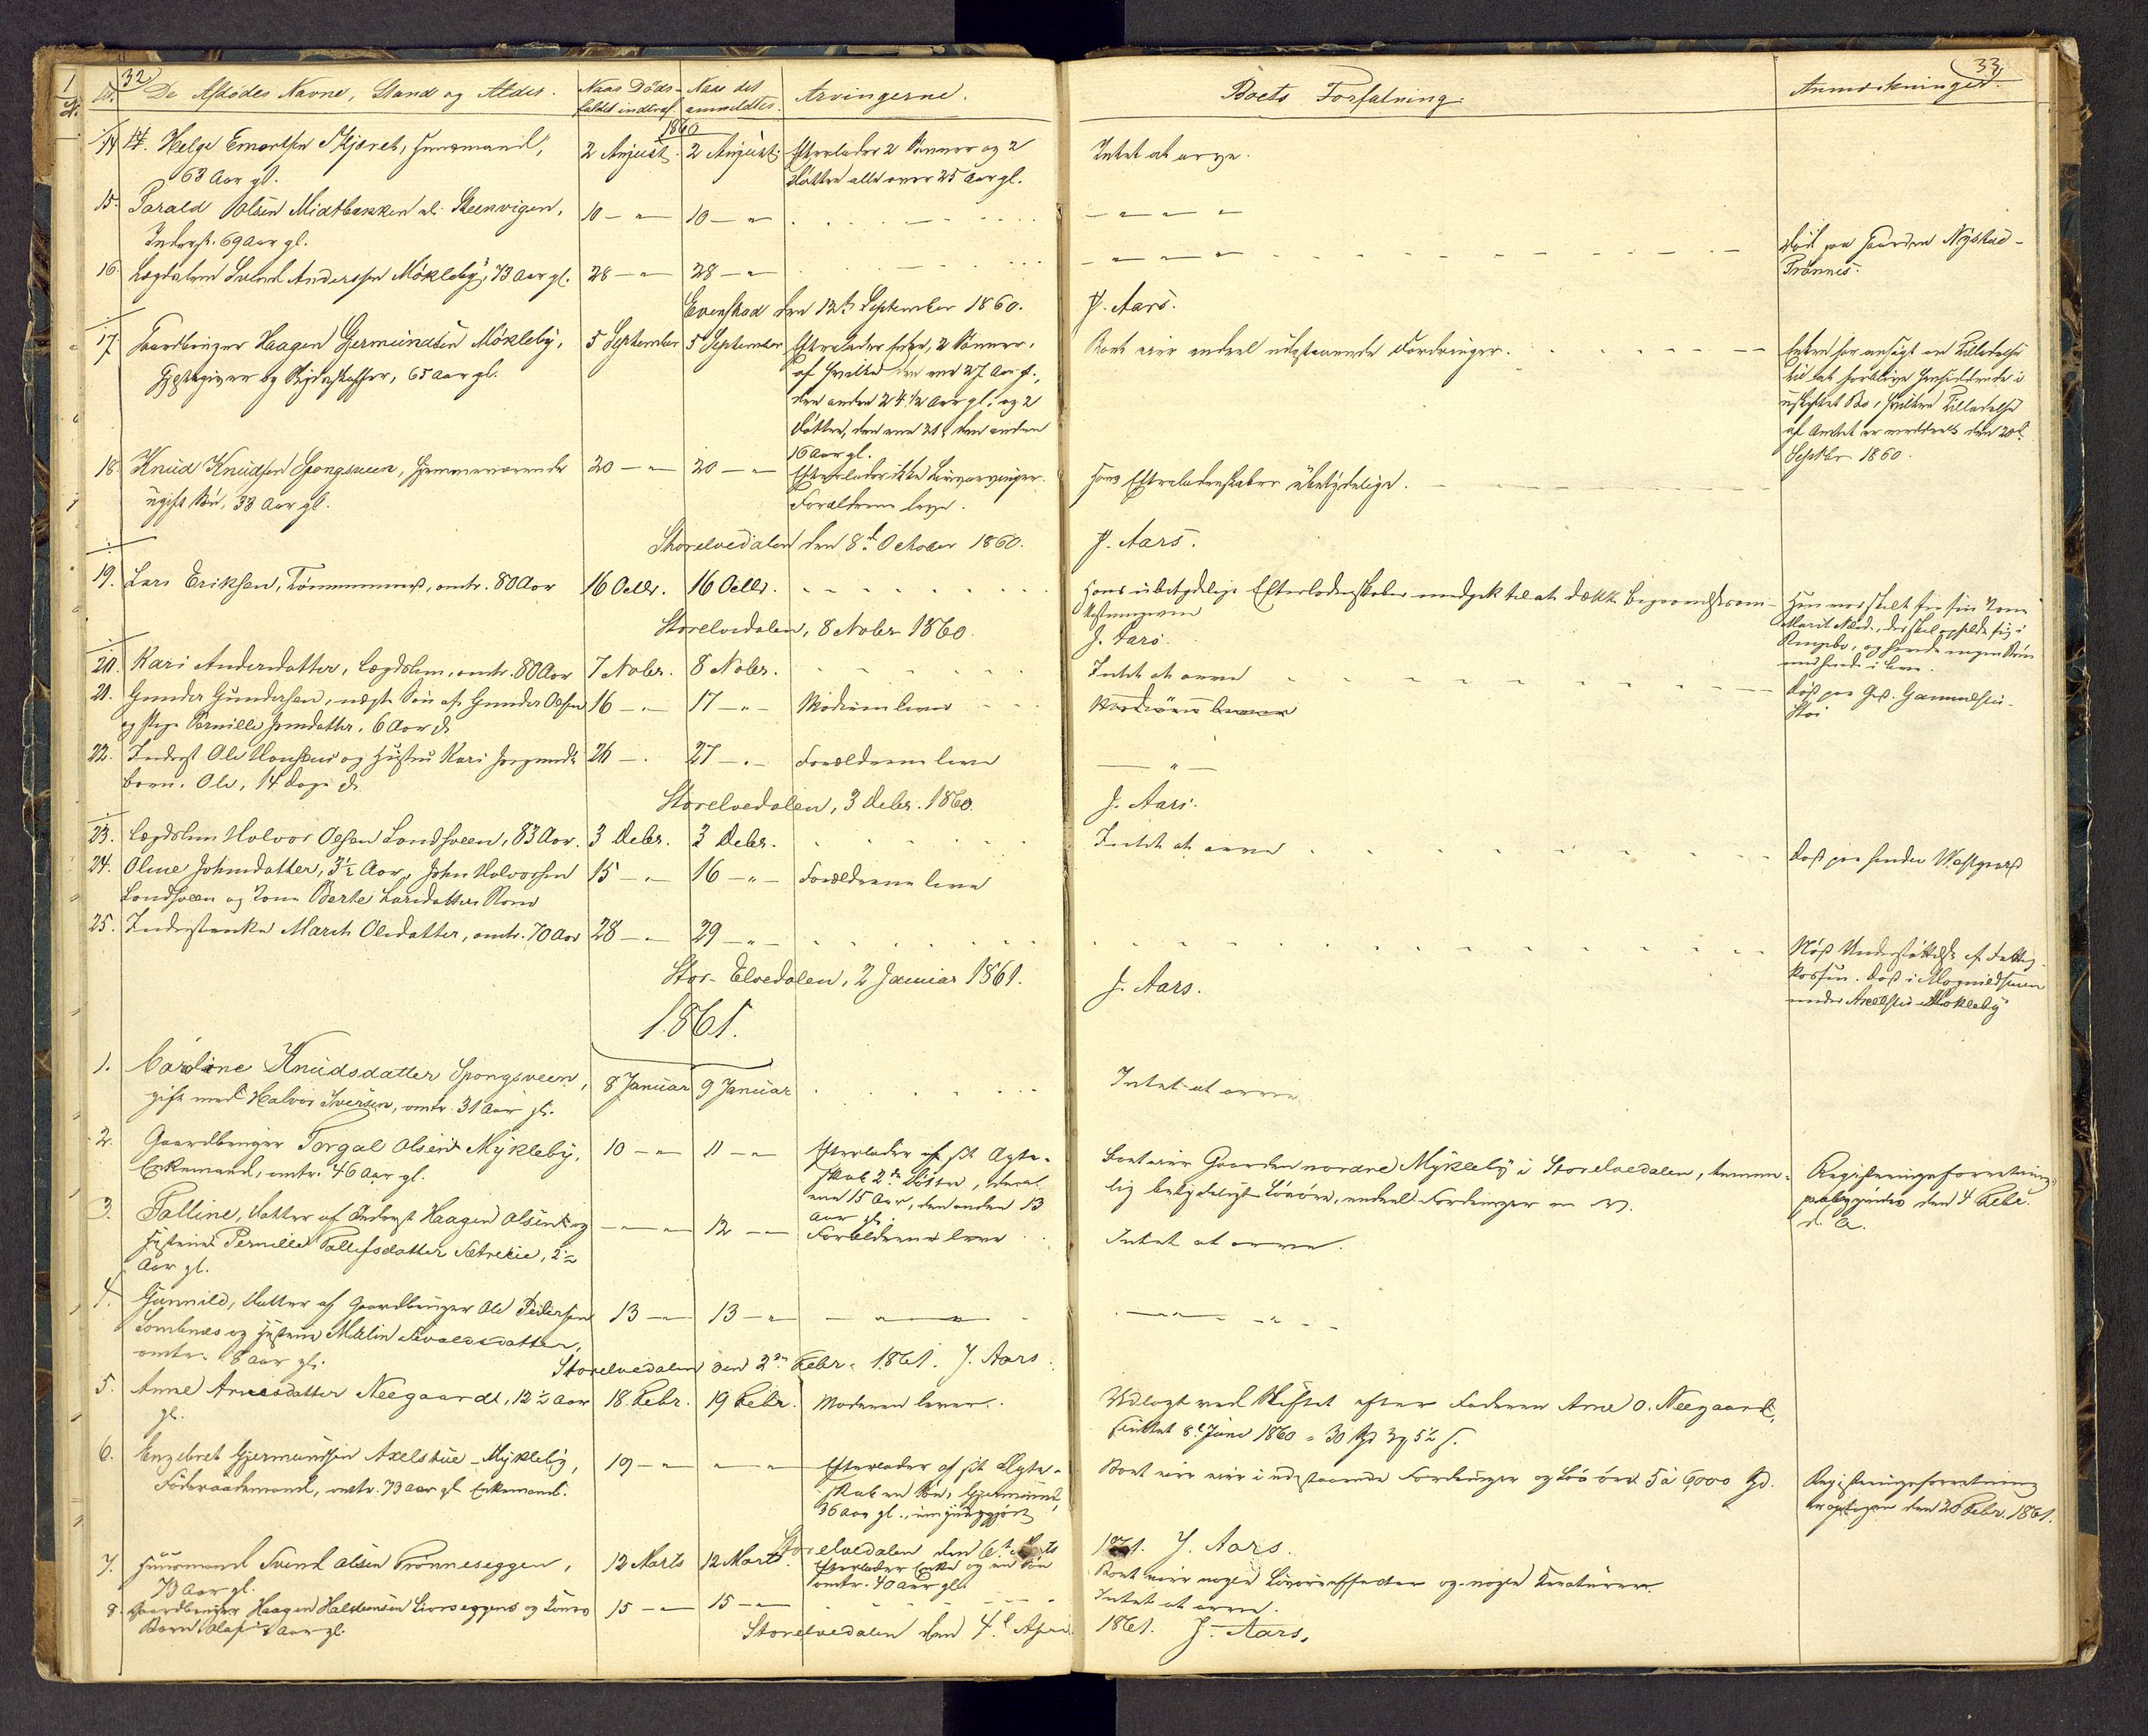 32
No. De Afdødes Navne, Stand og Alder. Naar Døds- Naar det Arvingerne.
faldet indtraf anmeldtes.
1860
14. Helge Skjæret, Huusmand, 2 August. 2 August. Efterlader 2 Sønner og 2
63 Aar gl. Døttre alle over 25 Aar gl.
15. Olsen Midtbakken Steenvigen, 10 — " 10 — "
Inderst. 69 Aar gl.
16. Lægdslem Svend Anderssen Møkleby, 73 Aar gl. 28 — " 28 — "
Evenstad den 12te September 1860.
17. Gaardbruger Haagen Gjermundsen Møkleby, 5 September 5 September Efterlader Enke, 2 Sønner,
Gjestgiver og Skydsskaffer, 65 Aar gl. af hvilke den ene 27 Aar gl.,
den anden 24 1/2 Aar gl. og 2
Døttre, den ene 21, den anden
16 Aar gl.
18. Knud Knudsen Spongsveen, Hjemmeværende 20 — " 20 — " Efterlader ikke Livsarvinger.
ugift Søn, 33 Aar gl. Forældrene leve.
Storelvedalen den 8de October 1860.
19. Lars Eriksen, Tømmermand, omtr. 80 Aar 16 Octbr. 16 Octbr.
Storelvedalen, 8 Novbr 1860.
20. Kari Andersdatter, Lægdslem, omtr. 80 Aar 7 Novbr. 8 Novbr.
21. Gunder Gundersen, uægte Søn af Gunder Olsen 16 — " — 17 — " — Moderen lever
og Pige Pernille 6 Aar gl.
22. Inderst Ole og Hustru Kari 26 — " 27 — " — Forældrene leve
Barn. Ole, 14 Dage gl.
Storelvedalen, 3 Decbr. 1860.
23. Lægdslem Halvor Olsen Landsveen, 83 Aar. 3 Decbr. 3 Decbr.
24. Oline Johnsdatter, 3½ Aar, John Halvorsen 15 — " 16 — " — Forældrene leve
Landsveen og Kone Berte Larsdatters Barn
25. Inderstenke Marit Olsdatter, omtr. 70 Aar 28 — " 29 — " —
Stor-Elvedalen, 2 Januar 1861.
1861.
1. Caroline Knudsdatter Spongsveen, 8 Januar 9 Januar
gift med Halvor Iversen, omtr. 31 Aar gl.
2. Gaardbruger Torgal Olsen Mykleby, 10 — " 11 — " Efterlader af sit Ægte-
Enkemand, omtr. 46 Aar gl. skab 2de Døttre, den
ene 15 Aar, den anden 13
Aar gl.
3. Talline, Datter af Inderst Haagen Olsen og — " — 12 — " Forældrene leve
Hustrue Pernille Tollefsdatter
Aar gl.
4. Gunnild, Datter af Gaardbruger Ole Pedersen 13 — " 13 — " — " —
og Hustrue Malin
omtr. 8 Aar gl.
Storelvedalen den 2den Febr. 1861. J. Aars.
5. Anne Arnesdatter Neegaardt, 12½ Aar 18. Febr. 19 Febr. Moderen lever.
gl.
6. Engebret Gjermundsen Axelstue-Mykleby, 19 — " — " Efterlader af sit Ægte-
Föderaadsmand, omtr. 73 Aar gl. Enkemand. skab en Søn, Gjermund,
36 Aar gl.
Storelvedalen den 6te Marts
7. Huusmand Svend Olsen Trønneseggen, 12 Marts 12 Marts. Efterlader Enke og en Søn
73 Aar gl. omtr. 40 Aar gl.
8. Gaardbruger Haagen Halstensen og Kones 15 — " 15 — "
Barn Olaf Aar gl.
Storelvedalen den 4de April
33
Boets Forfatning. Anmærkninger.
Intet at arve.
— " — " —
— " — " — Død paa Gaarden Nystue-
Trønnes.
J. Aars.
Boet eier endeel udestaaende Fordringer. Enken har ansøgt om Tilladelse
til at forblive hensiddende i
uskiftet Bo, hvilken Tilladelse
af Amtet er meddelt den 20de
Septbr 1860.
Hans Efterladenskaber ubetydelige.
J. Aars.
Hans ubetydelige Efterladenskaber medgik til at dække Begravelsesom- Han var skilt fra sin Kone
kostningerne Marit der skal opholde sig i
J. Aars. Ringebo, og havde ingen Børn
Intet at arve med hende i live.
Død paa
Moderen lever
— " —
J. Aars.
Intet at arve Død paa Søndre Vestgaard
Nød Understøttelse af Fattig-
kassen. Død i
under Axelstue Møkleby
J. Aars.
Intet at arve
Boet eier Gaarden nordre Mykleby i Storelvedalen, temme- Registreringsforretning
lig betydeligt Løsøre, endeel Fordringer m. v. paabegyndes den 4 Febr.
d. A.
Intet at arve.
— " — " —
Udlagt ved Skiftet efter Faderen Arne O. Neegaard,
sluttet 8de Juni 1860 = 30 Spd 3 ₰ 5½ s.
Boet eier i udestaaende Fordringer og Løsøre 5 à 6,000 Spd. Registreringsforretning
er optagen den 20 Febr. 1861.
1861. J. Aars.
Boet eier nogle Løsøreeffecter og nogle Kreaturer.
Intet at arve.
1861. J. Aars.